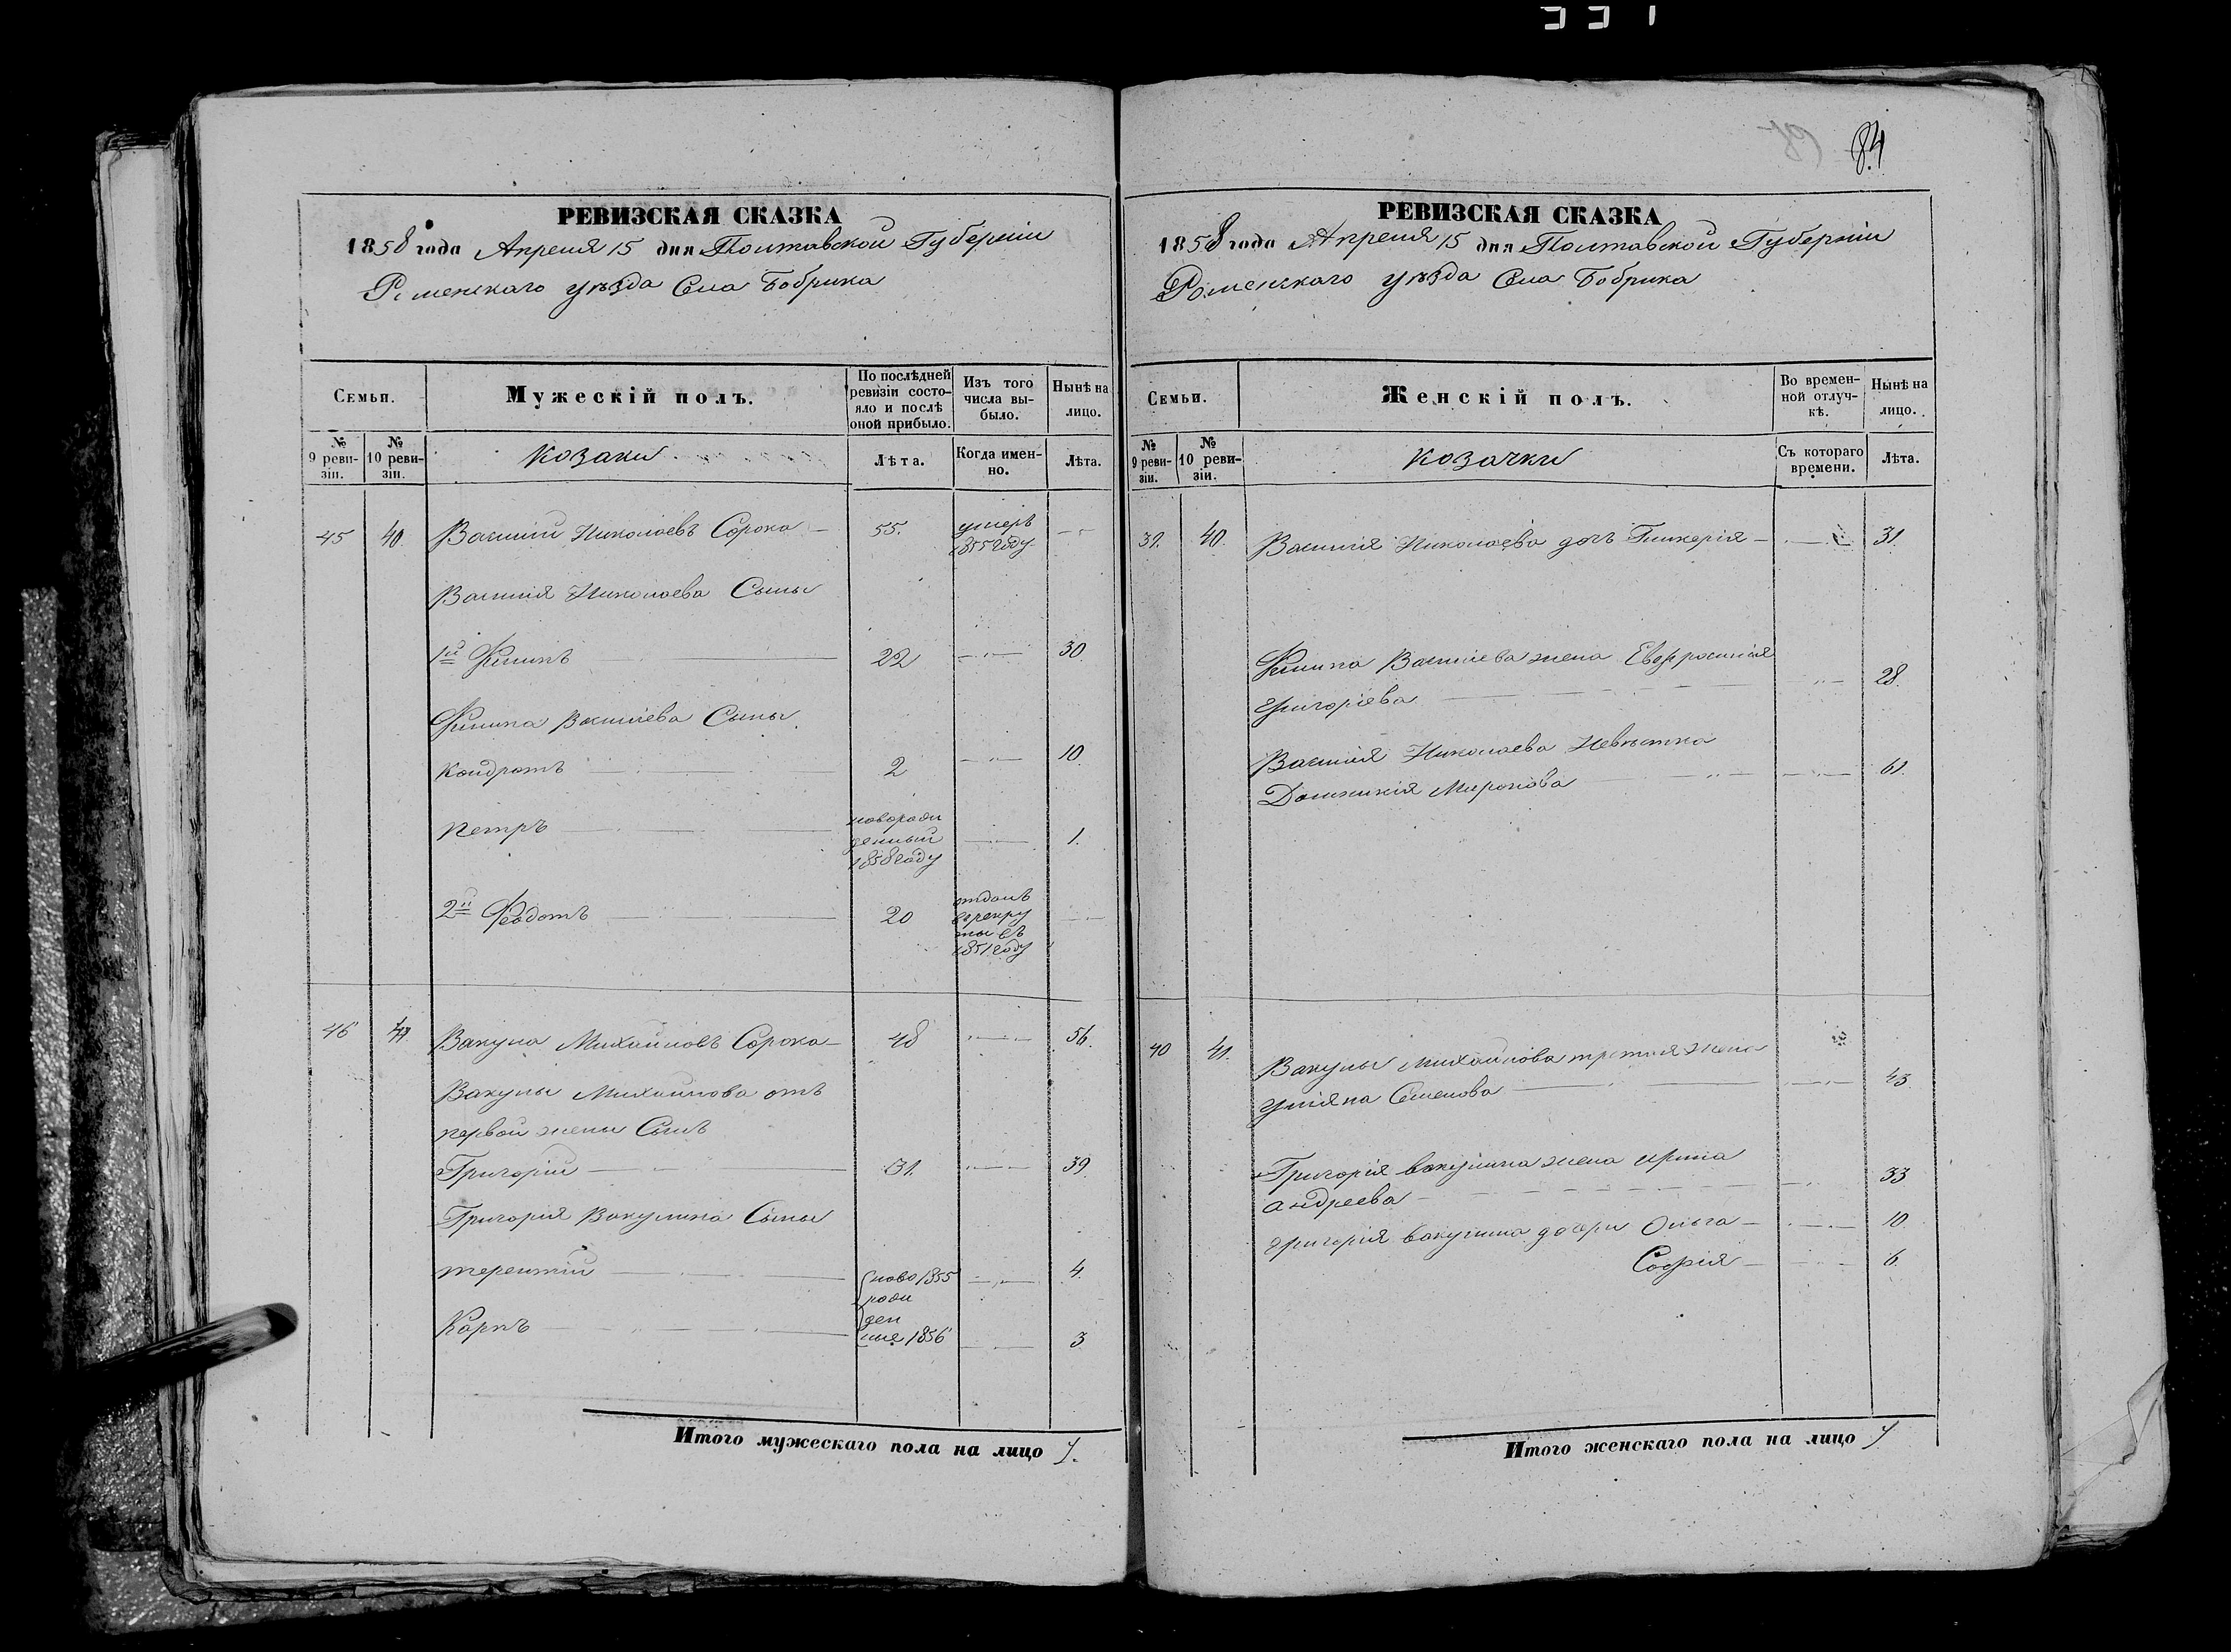 331
84
РЕВИЗСКАЯ СКАЗКА
1858 года Апреля 15 дня Полтавской Губерніи
Роменскаго уѣзда Села Бобрика
Семьи.
Мужескій полъ.
По послѣдней ревизіи состояло и послѣ оной прибыло.
Изъ того числа выбыло.
Нынѣ на лицо.
№ 9 ревизіи.
№ 10 ревизіи.
козаки
Лѣта.
Когда именно.
Лѣта.
45 40. Василий Николаевъ Сорока — 55. умеръ 1855 году
Василія Николаева Сыны
1й Филипъ 22 30.
Филипа Василіева Сыны
Кондратъ 2 10.
Петръ новорожденный 1858 году 1.
2й Феодотъ 20 отданъ
в рекру
ты въ
1851 году
46 41 Вакула Михайловъ Сорока — 48 56.
Вакулы Михайлова отъ
первой жены Сынъ
Григорій 31. 39.
Григорія Вакулина Сыны
терентий ново 1855 4.
роди
ден
Карпъ ные 1856 3
Итого мужескаго пола на лицо 7.
РЕВИЗСКАЯ СКАЗКА
1858 года Апреля 15 дня Полтавской Губерніи
Роменскаго уѣзда Села Бобрика
Семьи.
Женскій полъ.
Во временной отлучкѣ.
Нынѣ на лицо.
№ 9 ревизіи.
№ 10 ревизіи.
козачки
Съ котораго времени.
Лѣта.
39. 40. Василія Николаева дочь Гликерія — 31.
Филипа Василіева жена Евфросинія
Григоріева 28.
Василія Николаева Невѣстка
Домникія Миронова 61.
40 41. Вакулы Михайлова третия жена
Уліяна Семенова 43
Григорія вакулина жена ирина
андреева 33
григорія вакулина дочери Ольга — 10.
Софія — 6.
Итого женскаго пола на лицо 7